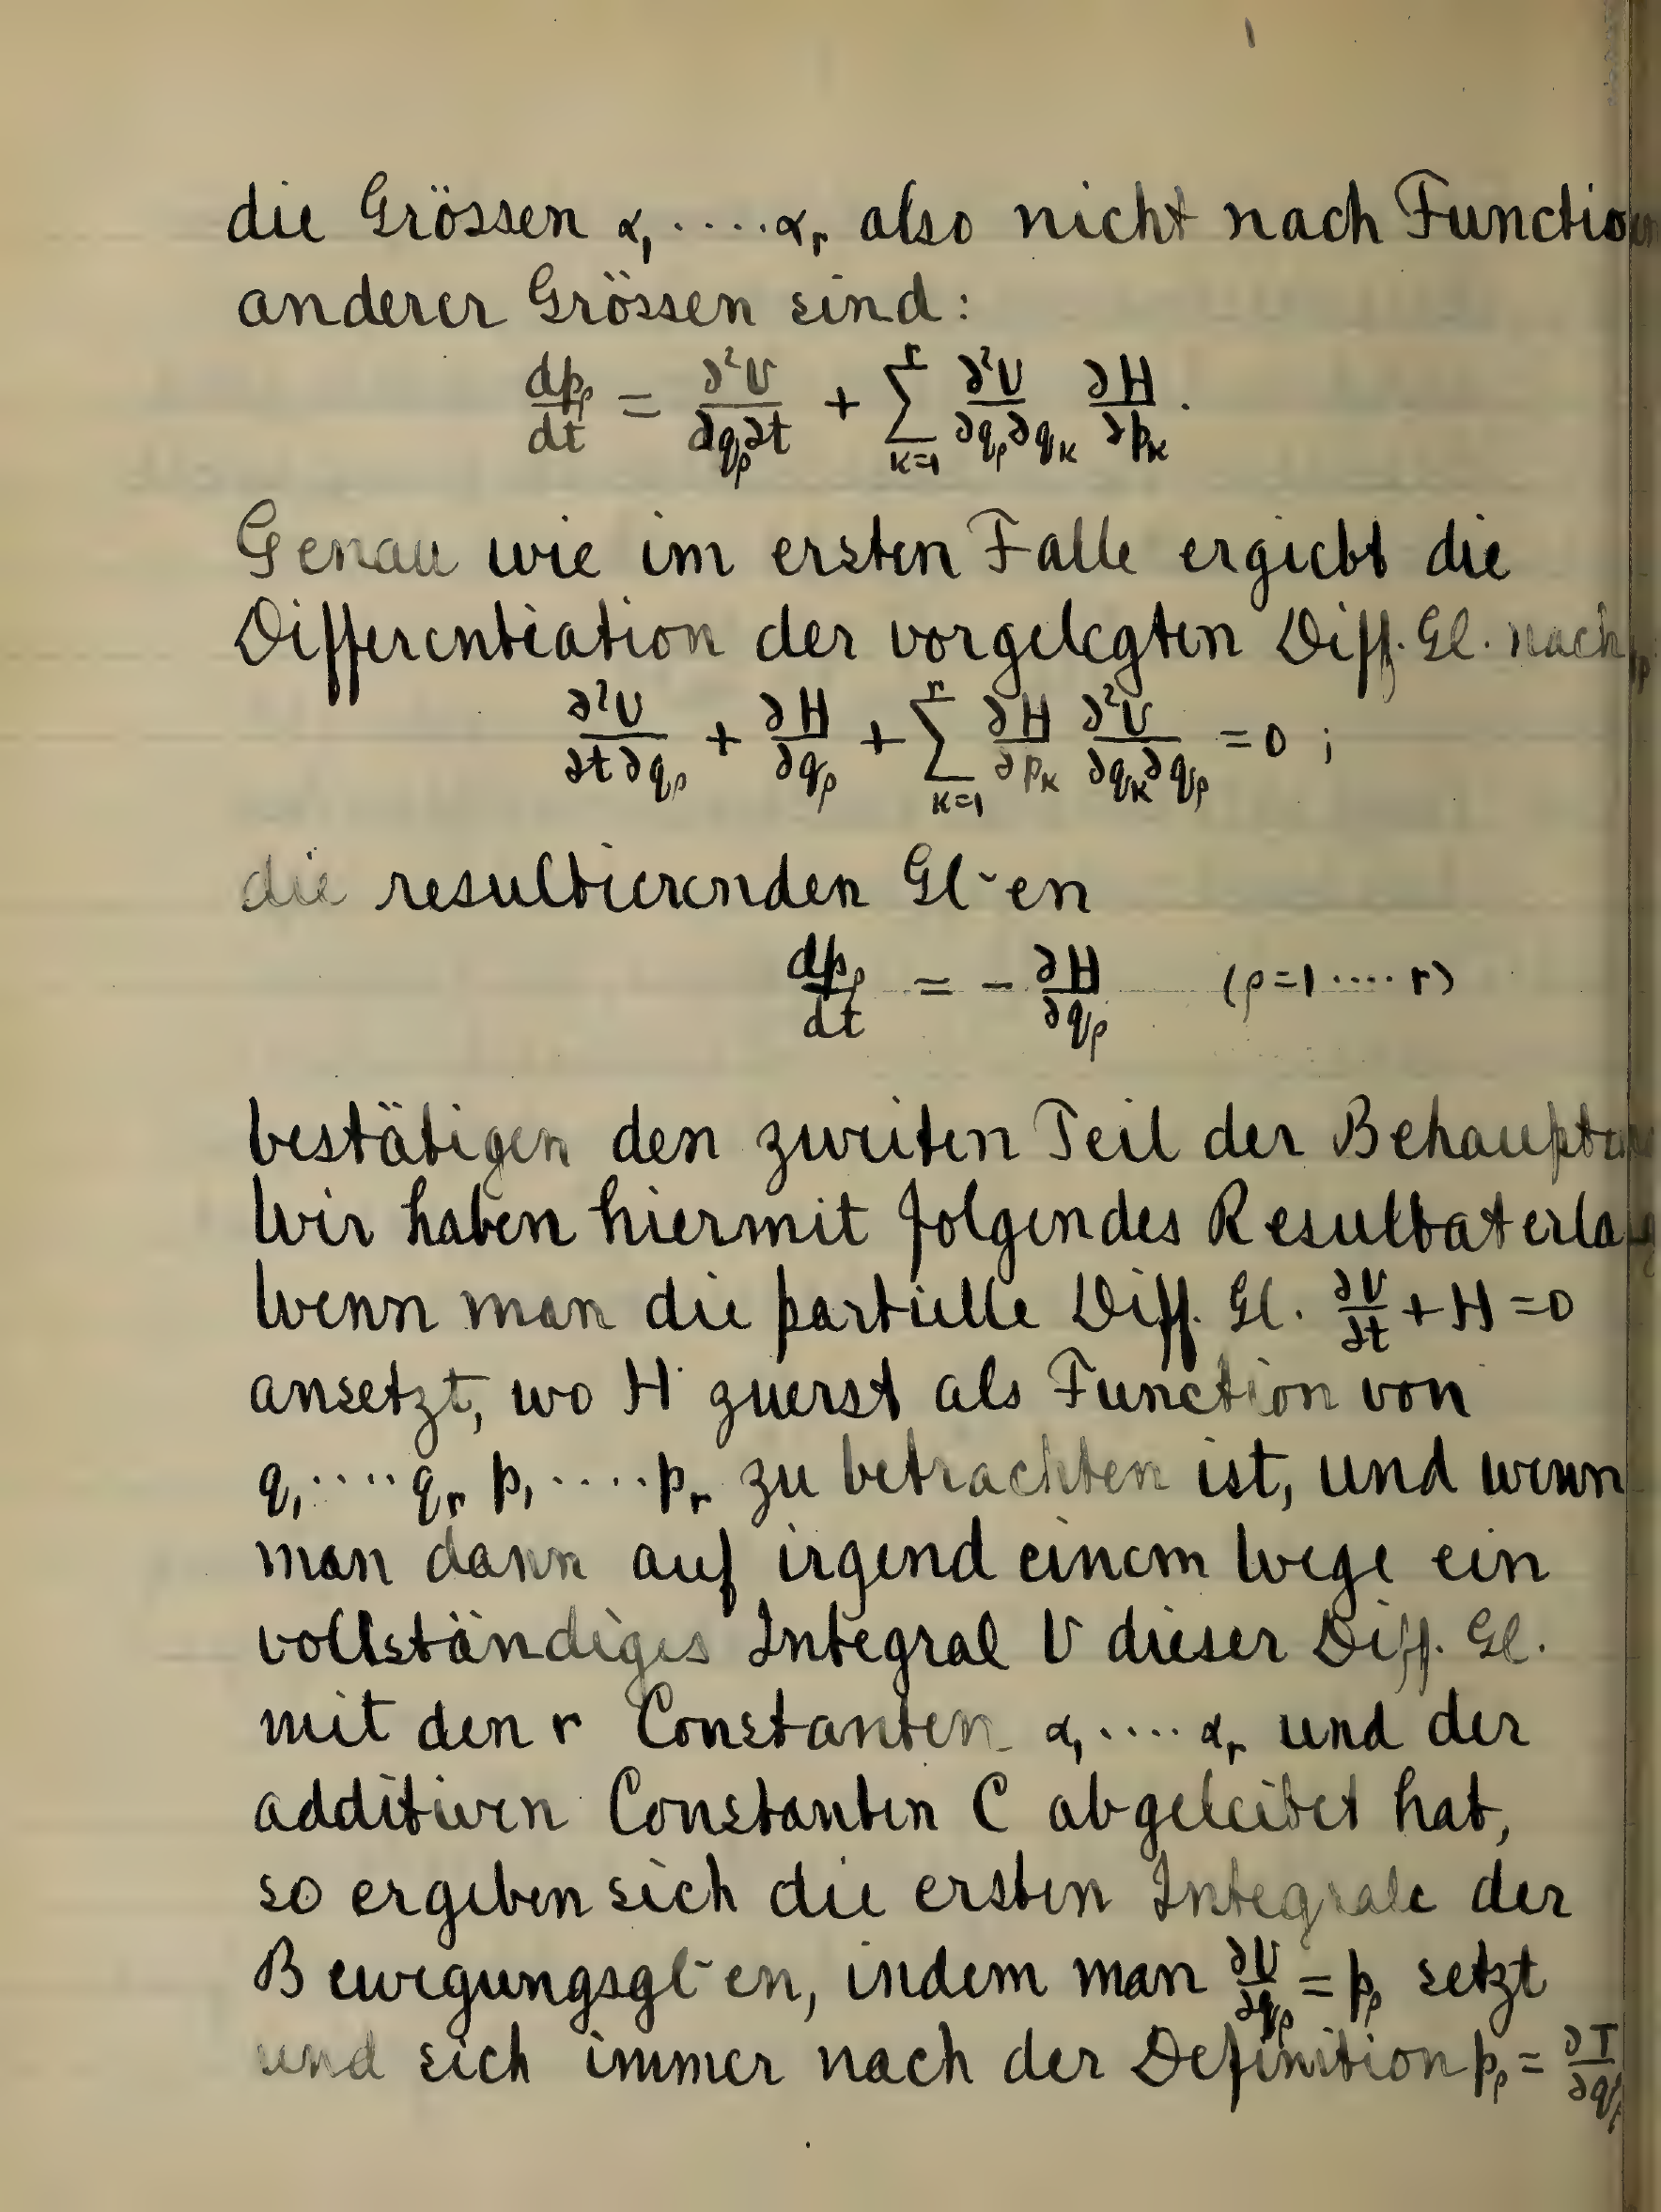 die Grössen α₁ ..... αᵣ also nicht nach Function
anderer Grössen sind:
dp_ρ/dt = ∂²V/∂q_ρ∂t + ∑_{κ=1}^{r} ∂²V/∂q_ρ∂q_κ ∂H/∂p_κ .
Genau wie im ersten Falle ergiebt die
Differentiation der vorgelegten Diff. Gl. nach
∂²V/∂t∂q_ρ + ∂H/∂q_ρ + ∑_{κ=1}^{r} ∂H/∂p_κ ∂²V/∂q_κ∂q_ρ = 0 ;
die resultierenden Gl-en
dp_ρ/dt = - ∂H/∂q_ρ (ρ=1 ..... r)
bestätigen den zweiten Teil der Behauptung
Wir haben hiermit folgendes Resultat erlang
Wenn man die partielle Diff. Gl. ∂V/∂t + H = 0
ansetzt, wo H zuerst als Function von
q₁ ..... qᵣ p₁ ..... pᵣ zu betrachten ist, und wenn
man dann auf irgend einem Wege ein
vollständiges Integral V dieser Diff. Gl.
mit den r Constanten α₁ .... αᵣ und der
additiven Constanten C abgeleitet hat,
so ergeben sich die ersten Integrale der
Bewegungsgl-en, indem man ∂V/∂q_ρ = p_ρ setzt
und sich immer nach der Definition p_ρ = ∂T/∂q'